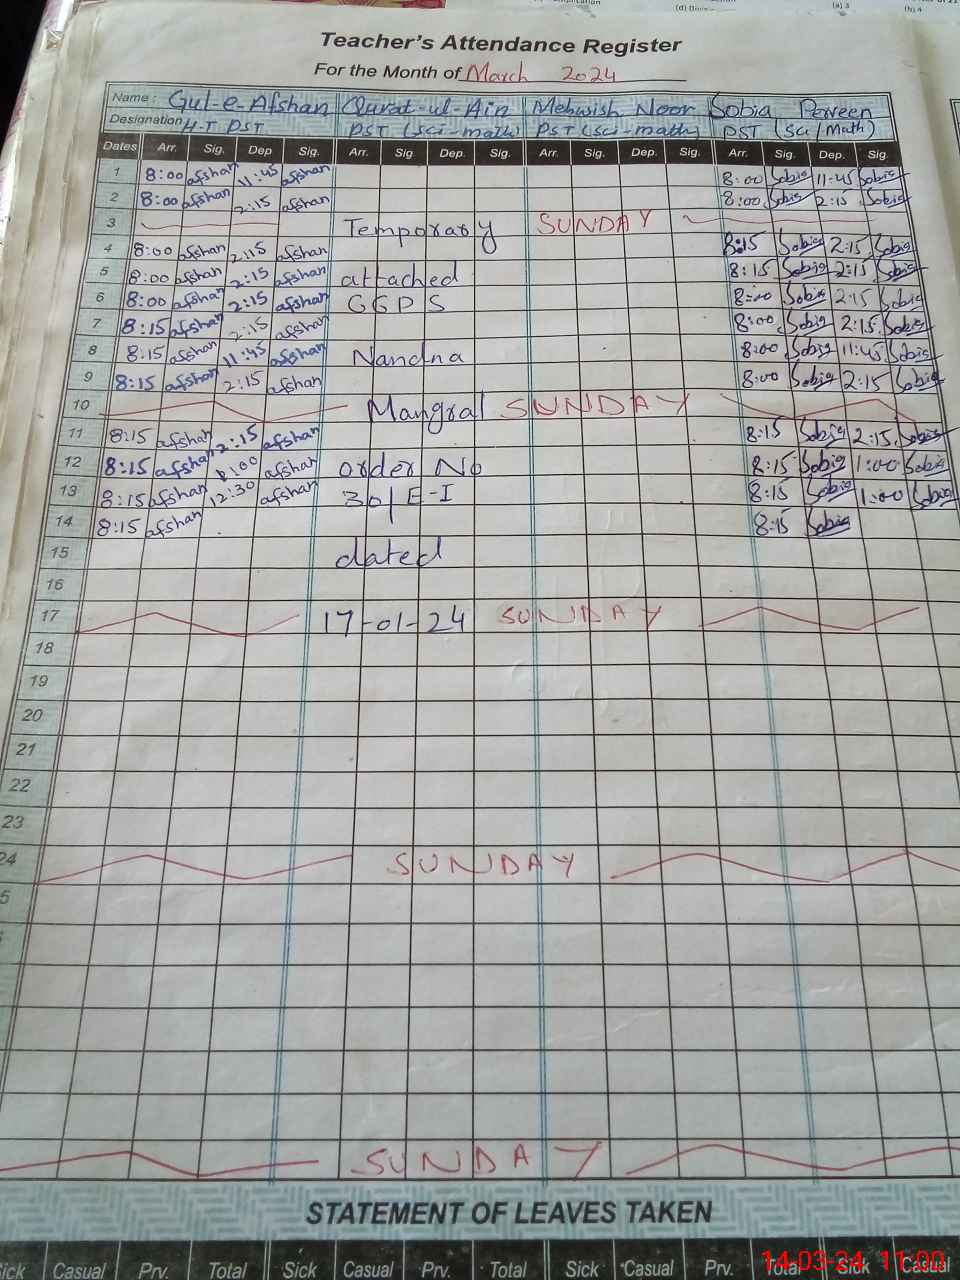 (d) Divis
(a) 3
(b) 4
Teacher's Attendance Register
For the Month of March 2024
Name : Gul-e-Afshan Qurat-ul-Ain Mehwish Noor Sobia Perveen
Designation H-T PST PST (Sci-math) PST (Sci-math) PST (Sci/Math)
Dates Arr. Sig. Dep Sig. Arr. Sig. Dep. Sig. Arr. Sig. Dep. Sig. Arr. Sig. Dep. Sig.
1 8:00 afshan 11:45 afshan 8:00 Sobia 11:45 Sobia
2 8:00 afshan 2:15 afshan 8:00 Sobia 2:15 Sobia
3 Temporary SUNDAY
4 8:00 afshan 2:15 afshan 8:15 Sobia 2:15 Sobia
5 8:00 afshan 2:15 afshan attached 8:15 Sobia 2:15 Sobia
6 8:00 afshan 2:15 afshan GGPS 8:00 Sobia 2:15 Sobia
7 8:15 afshan 2:15 afshan 8:00 Sobia 2:15 Sobia
8 8:15 afshan 11:45 afshan Nandna 8:00 Sobia 11:45 Sobia
9 8:15 afshan 2:15 afshan 8:00 Sobia 2:15 Sobia
10 Mangral SUNDAY
11 8:15 afshan 2:15 afshan 8:15 Sobia 2:15 Sobia
12 8:15 afshan 1:00 afshan order No 8:15 Sobia 1:00 Sobia
13 8:15 afshan 12:30 afshan 30/E-I 8:15 Sobia 1:00 Sobia
14 8:15 afshan 8:15 Sobia
15 dated
16
17 17-01-24 SUNDAY
18
19
20
21
22
23
24 SUNDAY
5
SUNDAY
STATEMENT OF LEAVES TAKEN
Sick Casual Prv. Total Sick Casual Prv. Total Sick Casual Prv. Total Sick Casual
14-03-24 11:00